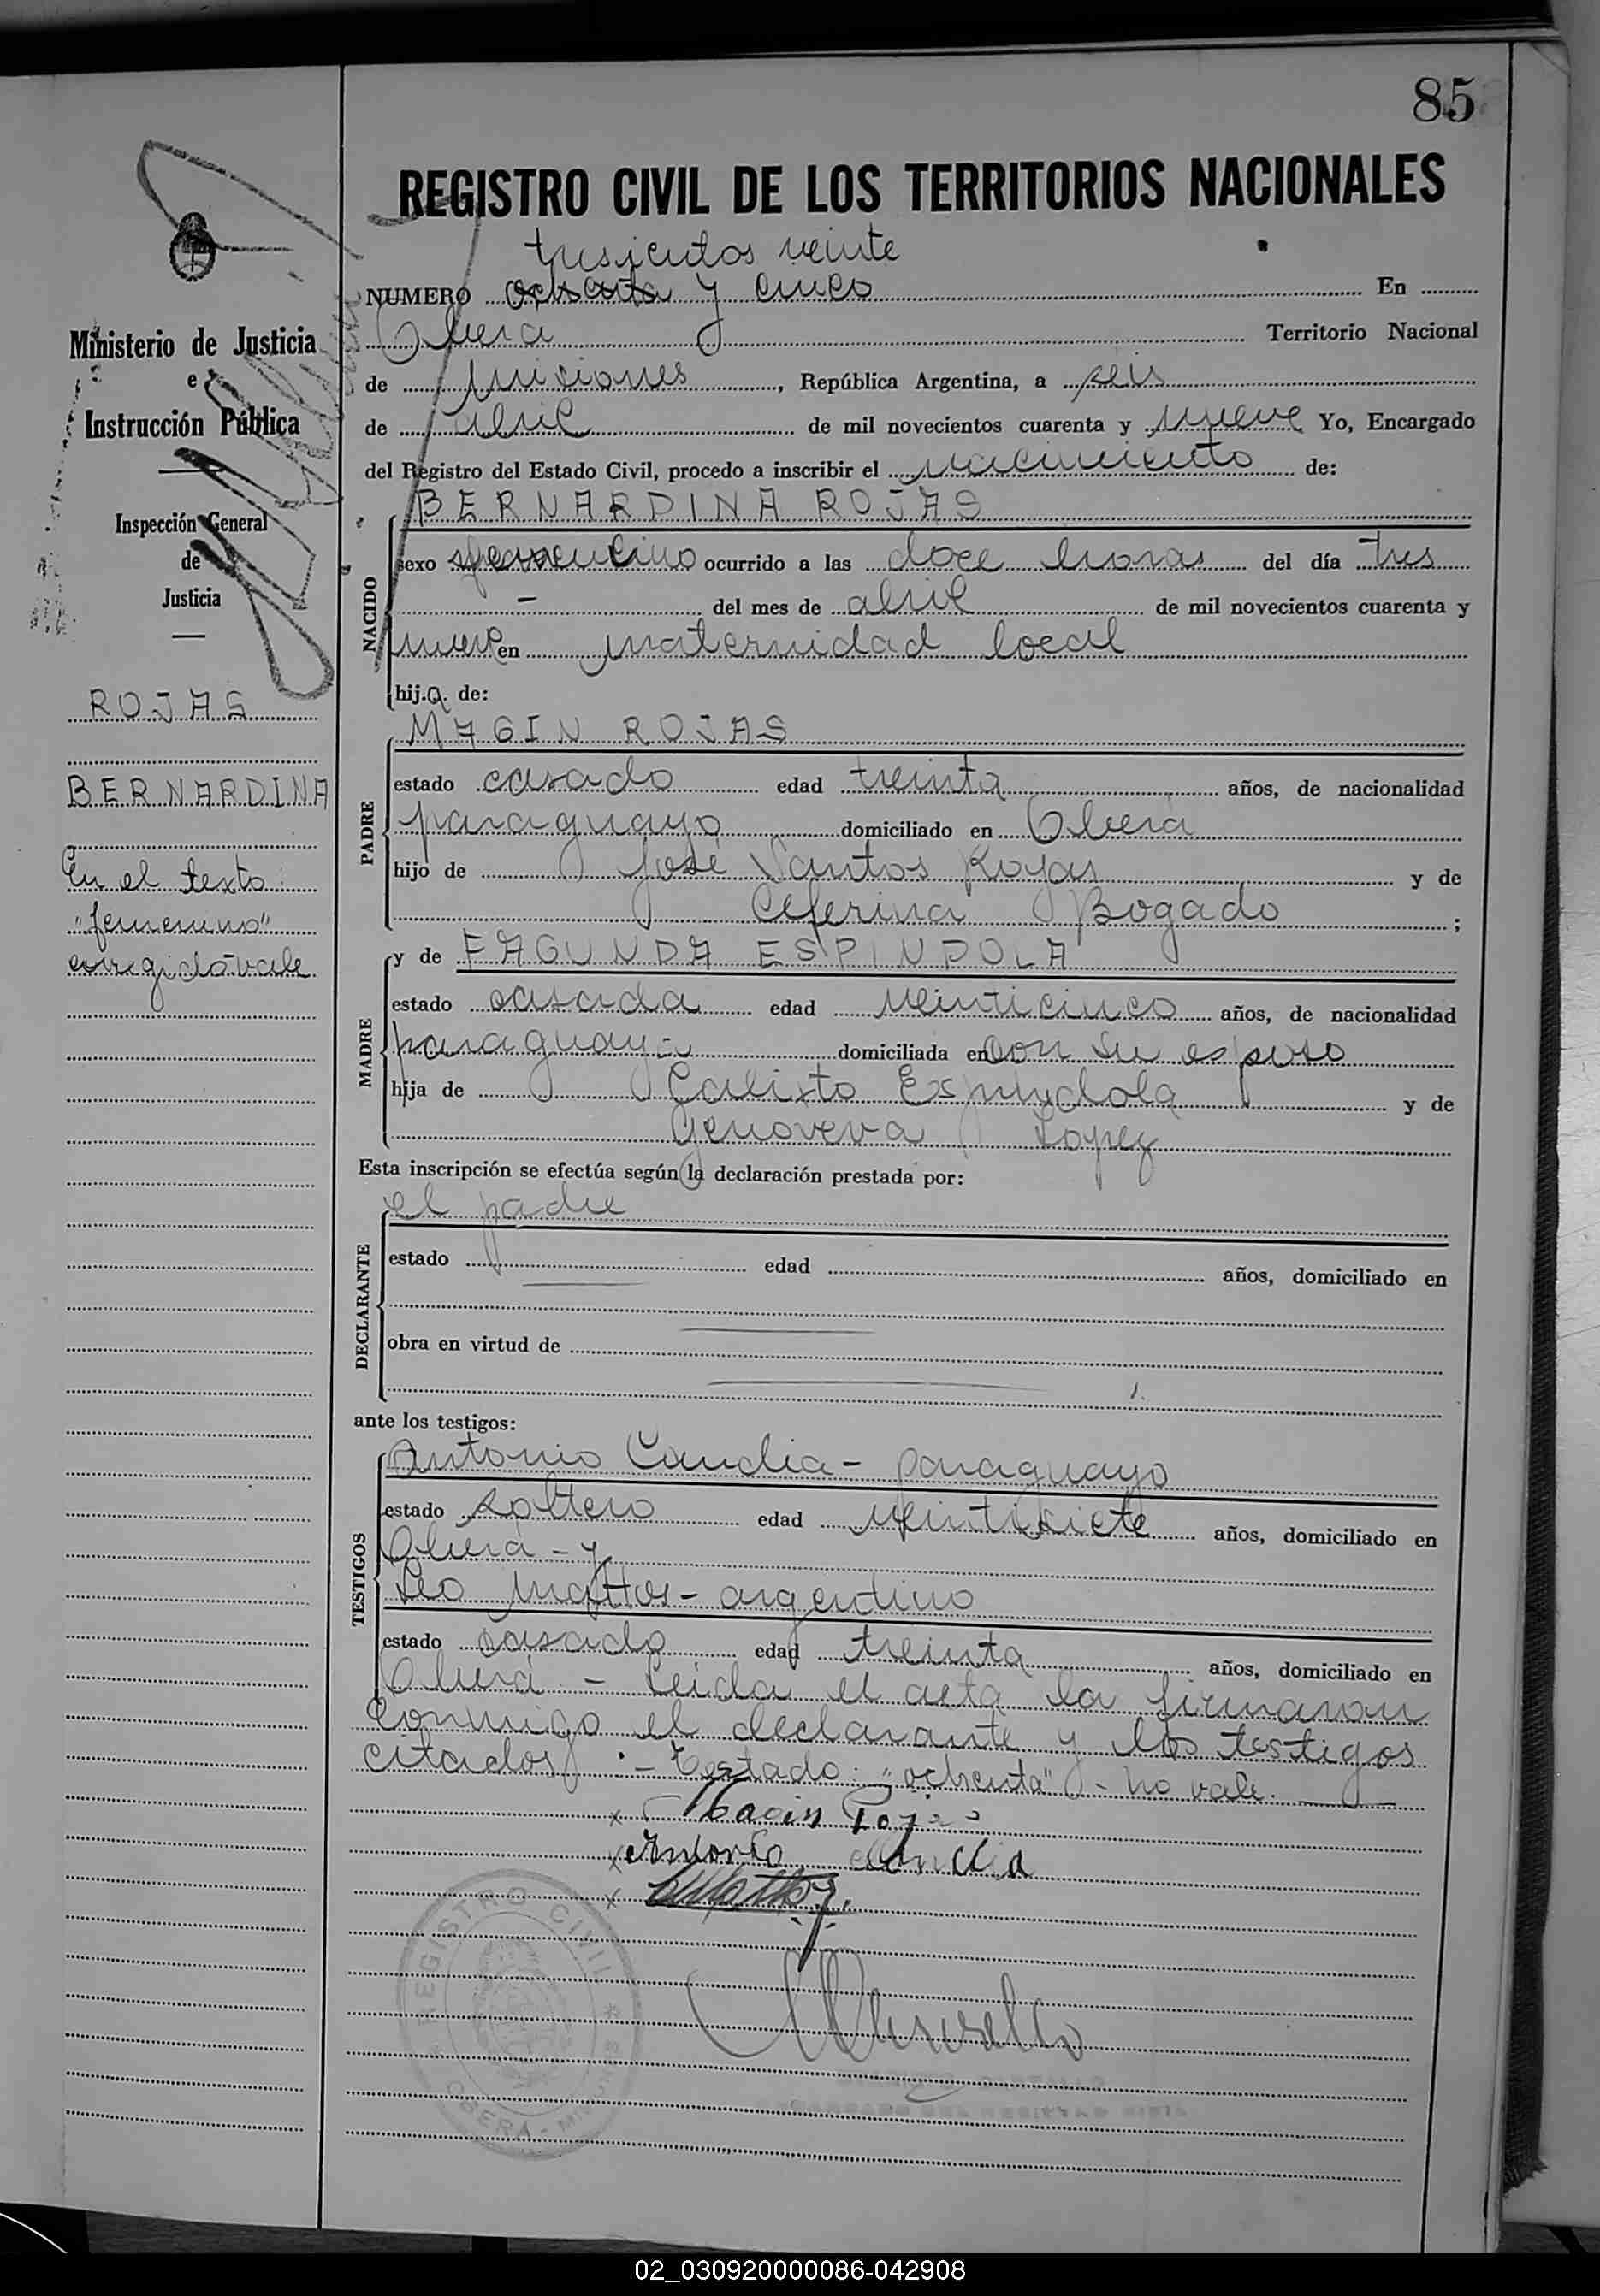 85
REGISTRO CIVIL DE LOS TERRITORIOS NACIONALES
tresientos veinte
NUMERO ochenta y cinco En
Oberá Territorio Nacional
de Misiones, República Argentina, a seis
de abril de mil novecientos cuarenta y nueve Yo, Encargado
del Registro del Estado Civil, procedo a inscribir el nacimiento de:
BERNARDINA ROJAS
NACIDO
sexo femenino ocurrido a las doce horas del día tres
- del mes de abril de mil novecientos cuarenta y
nueve en maternidad local
hij.a de:
MAGIN ROJAS
PADRE
estado casado edad treinta años, de nacionalidad
paraguayo domiciliado en Oberá
hijo de José Santos Rojas y de
Ceferina Bogado ;
y de FAGUNDA ESPINDOLA
MADRE
estado casada edad veinticinco años, de nacionalidad
paraguaya domiciliada en con su esposo
hija de Calixto Espindola y de
Genoveva Lopez
Esta inscripción se efectúa según la declaración prestada por:
el padre
DECLARANTE
estado edad años, domiciliado en
obra en virtud de
ante los testigos:
Antonio Candia - paraguayo
TESTIGOS
estado soltero edad veintisiete años, domiciliado en
Oberá - y
Leo Mattos - argentino
estado casado edad treinta años, domiciliado en
Oberá - Leida el acta la firmaron
conmigo el declarante y los testigos
citados. - Testado: "ochenta" - no vale.
x Magin Rojas
x Antonio Candia
x
REGISTRO CIVIL
OBERÁ - MISIONES
Ministerio de Justicia
e
Instrucción Pública
Inspección General
de
Justicia
ROJAS
BERNARDINA
En el texto:
"femenino"
corregido vale.
02_030920000086-042908